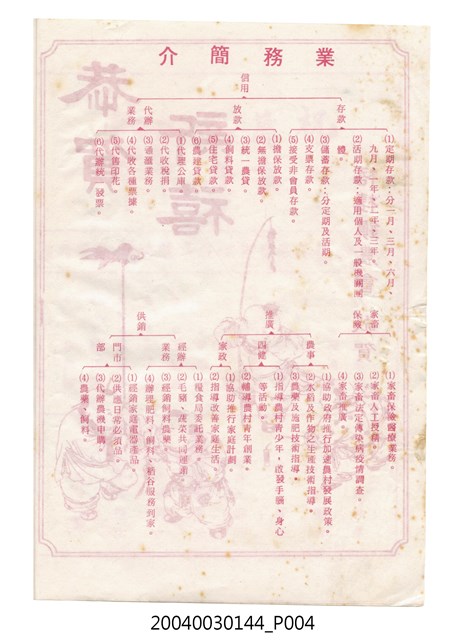 業務簡介
信用
存款
(1)定期存款:分一月、三月、六月、
九月、一年、二年、三年、
(2)活期存款:適用個人及一般機關團
體。
(3)儲蓄存款:分定期及活期。
(4)支票存款。
(5)接受非會員存款。
放款
(1)擔保放款。
(2)無擔保放款。
(3)統一農貸。
(4)飼料貸款。
(5)住宅貸款。
(6)農建貸款。
代辦
業務
(1)代理公庫。
(2)代收稅捐。
(3)通匯業務。
(4)代收各種票據。
(5)代售印花。
(6)代辦統一發票。
家畜
保險
(1)家畜保險醫療業務。
(2)家畜人工授精。
(3)家畜法定傳染病疫情調查。
(4)家畜推廣。
推廣
農事
(1)協助政府推行加速農村發展政策。
(2)水稻及作物之生產技術指導。
(3)農藥及施肥技術指導。
四健
(1)指導農村青少年,啟發手腦、身心
等活動。
(2)輔導農村青年創業。
家政
(1)協助推行家庭計劃。
(2)指導改善家庭生活。
供銷
經辦
業務
(1)糧食局委託業務。
(2)毛豬、產菜共同運銷。
(3)經銷飼料農藥。
(4)辦理肥料、飼料、稻谷服務到家。
門市
部
(1)經銷家庭電器產品。
(2)供應日常必須品。
(3)代辦農機申購。
(4)農藥、飼料。
恭賀
新禧
20040030144_P004